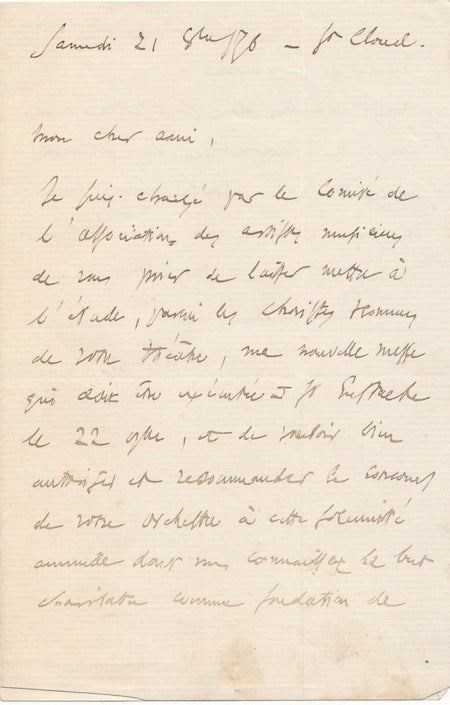 Samedi 21 8bre /76 – St Cloud.
mon cher ami,
Je suis chargé par le Comité de
l'association des artistes musiciens
de vous prier de laisser mettre à
l'étude, parmi les choristes hommes
de votre théâtre, ma nouvelle messe
qui doit être exécutée à St Eustache
le 22 9bre, et de vouloir bien
autoriser et recommander le concours
de votre orchestre à cette solennité
annuelle dont vous connaissez le but
charitable comme fondation de